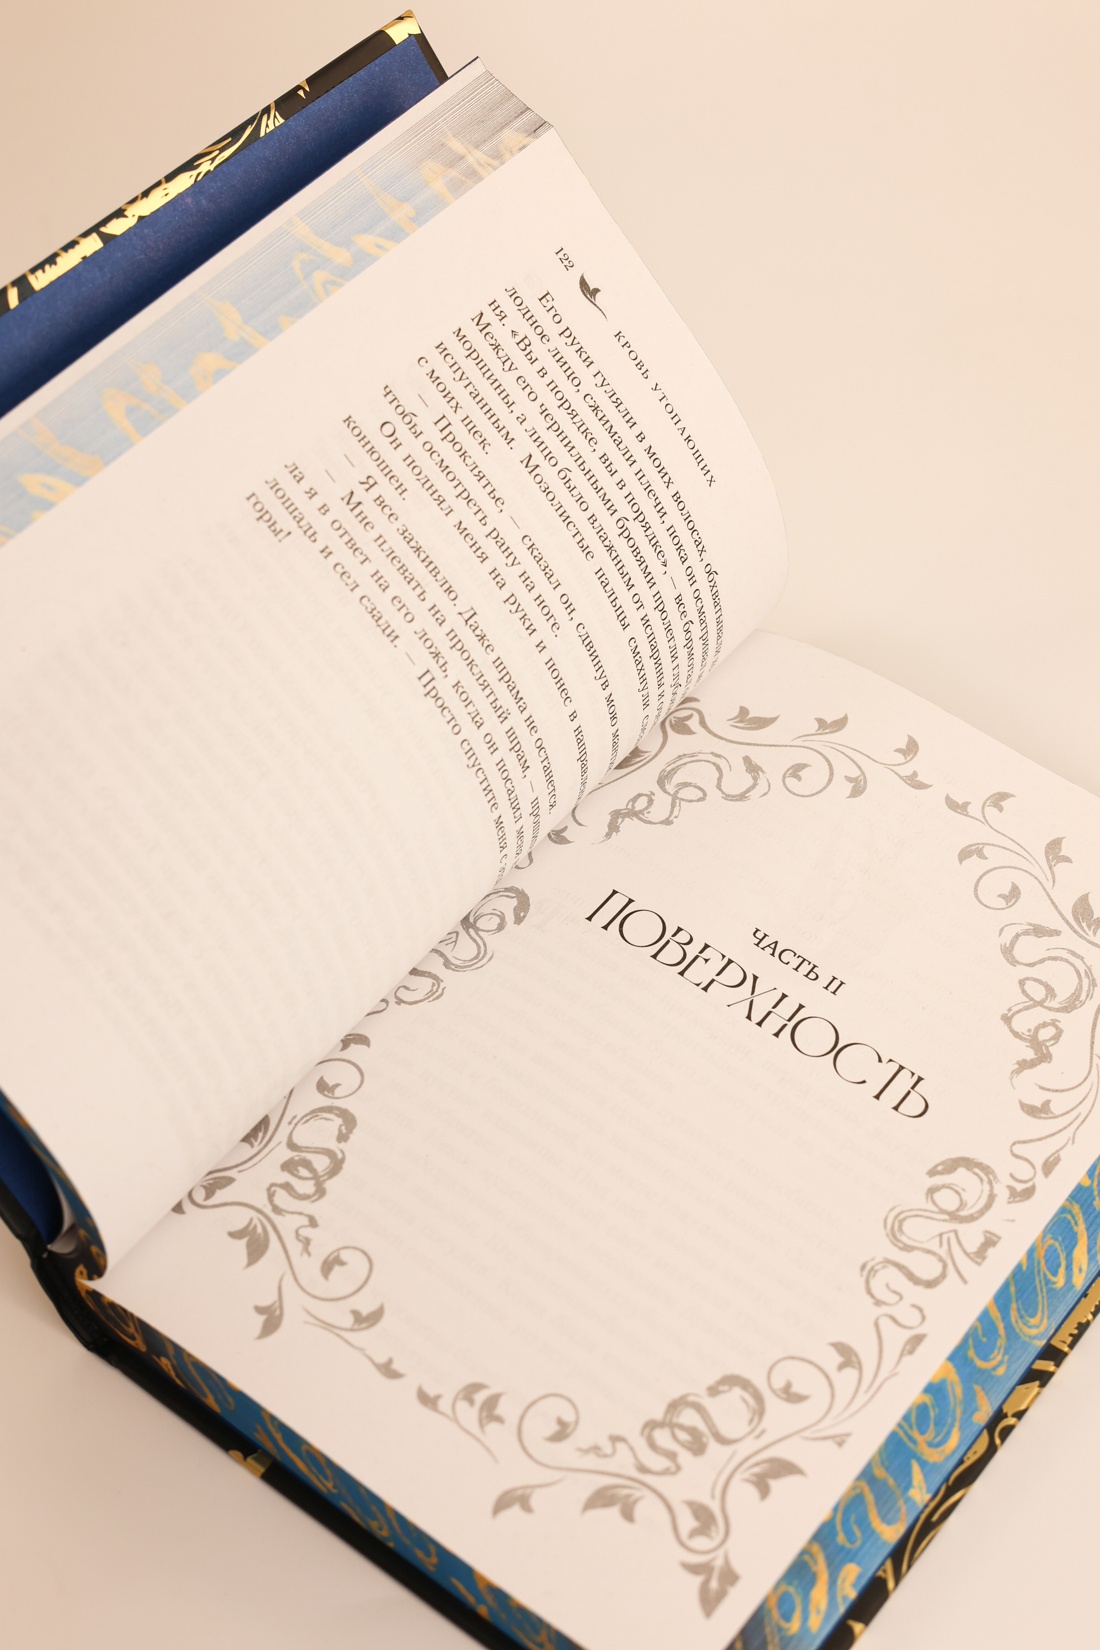 122 КРОВЬ УТОПАЮЩИХ
Его руки гуляли в моих волосах,
лодное лицо, сжимали плечи, пока он
ня. «Вы в порядке, вы в порядке», — все
Между его чернильными бровями пролегли
морщины, а лицо было влажным от испарины и
испуганным. Мозолистые пальцы смахнули
с моих щек.
— Проклятье, — сказал он, сдвинув мою
чтобы осмотреть рану на ноге.
Он поднял меня на руки и понес в
конюшен.
— Я все заживлю. Даже шрама не останется.
— Мне плевать на проклятый шрам, —
ла я в ответ на его ложь, когда он посадил
лошадь и сел сзади. — Просто спустите меня с
горы!
ЧАСТЬ II
ПОВЕРХНОСТЬ